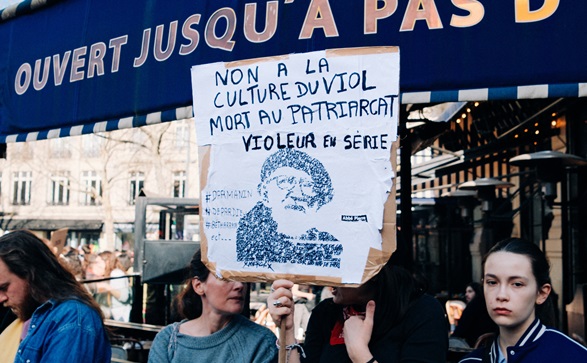 OUVERT JUSQU'À PAS D
NON A LA
CULTURE DU VIOL
MORT AU PATRIARCAT
VIOLEUR EN SÉRIE
#DARMANIN
ABBÉ Pierre